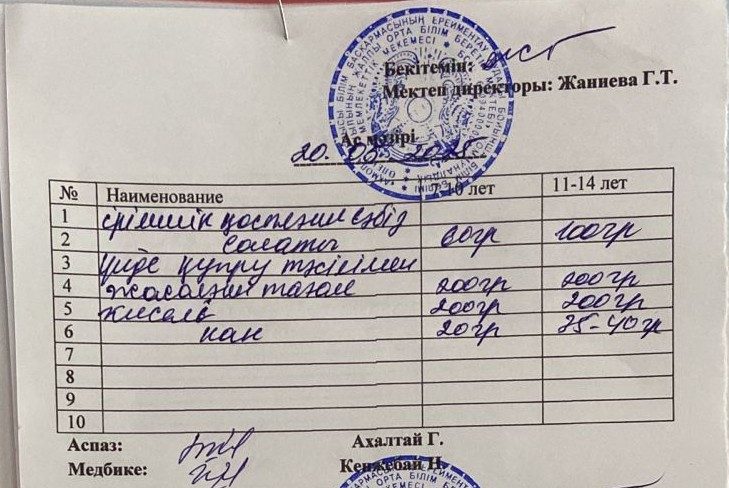 Бекітемін:
Мектеп директоры: Жаниева Г.Т.
Ас мәзірі
20. 03. 2025
№ Наименование 7-10 лет 11-14 лет
1 ірімшік қосылған сәбіз
2 салаты 60гр 100гр
3 үйде қуыру тәсілімен
4 жасалған тағам 200гр 200гр
5 кисель 200гр 200гр
6 нан 20гр 35-40гр
7
8
9
10
Аспаз: Ахалтай Г.
Медбике: Кенжебай Н.